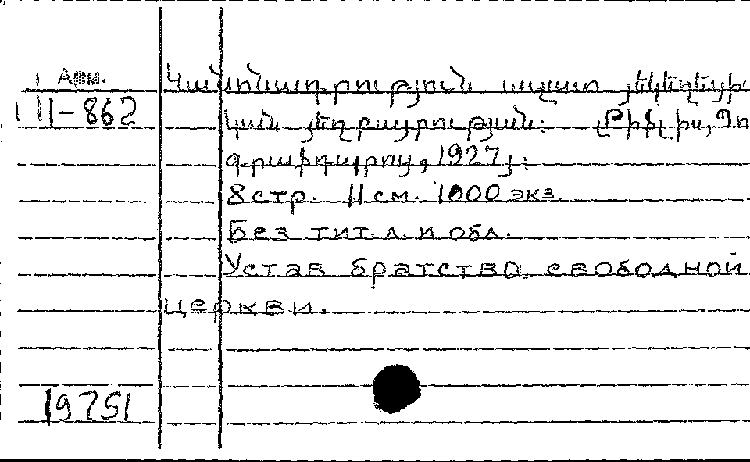 Арм.
Կանոնադրություն ազատ յեկեղեցի
III-862
կան յեղբայրության: Թիֆլիս, Պո
գրաֆդպրոց, 1927 թ:
8 стр. 11 см. 1000 экз.
Без тит. л. и обл.
Устав братства свободной
церкви.
19751